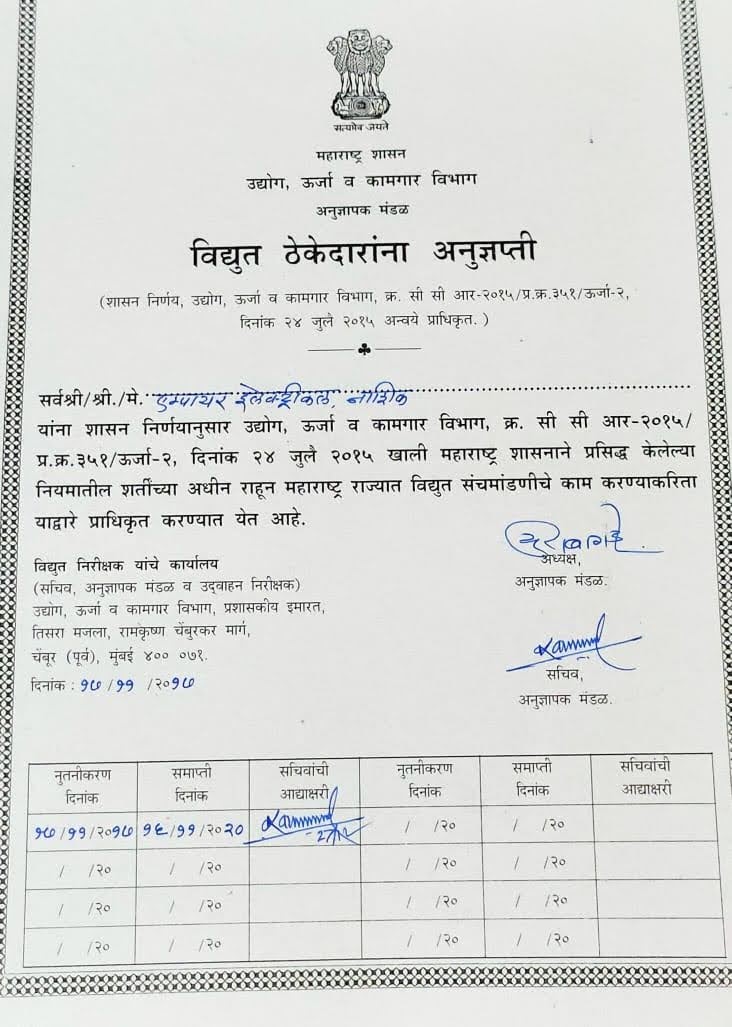 सत्यमेव जयते
महाराष्ट्र शासन
उद्योग, ऊर्जा व कामगार विभाग
अनुज्ञापक मंडळ
विद्युत ठेकेदारांना अनुज्ञप्ती
(शासन निर्णय, उद्योग, ऊर्जा व कामगार विभाग, क्र. सी सी आर-२०१५/प्र.क्र.३५१/ऊर्जा-२,
दिनांक २४ जुलै २०१५ अन्वये प्राधिकृत. )
सर्वश्री/श्री./मे. एम्पायर इलेक्ट्रीकल, नाशिक
यांना शासन निर्णयानुसार उद्योग, ऊर्जा व कामगार विभाग, क्र. सी सी आर-२०१५/
प्र.क्र.३५१/ऊर्जा-२, दिनांक २४ जुलै २०१५ खाली महाराष्ट्र शासनाने प्रसिद्ध केलेल्या
नियमातील शर्तीच्या अधीन राहून महाराष्ट्र राज्यात विद्युत संचमांडणीचे काम करण्याकरिता
याद्वारे प्राधिकृत करण्यात येत आहे.
अध्यक्ष,
अनुज्ञापक मंडळ.
विद्युत निरीक्षक यांचे कार्यालय
(सचिव, अनुज्ञापक मंडळ व उद्‌वाहन निरीक्षक)
उद्योग, ऊर्जा व कामगार विभाग, प्रशासकीय इमारत,
तिसरा मजला, रामकृष्ण चेंबुरकर मार्ग,
चेंबूर (पूर्व), मुंबई ४०० ०७१.
दिनांक : १७ /११ /२०१७
सचिव,
अनुज्ञापक मंडळ.
नुतनीकरण दिनांक समाप्ती दिनांक सचिवांची आद्याक्षरी नुतनीकरण दिनांक समाप्ती दिनांक सचिवांची आद्याक्षरी
१७/११/२०१७ १६/११/२०२० / /२० / /२०
/ /२० / /२० / /२० / /२०
/ /२० / /२० / /२० / /२०
/ /२० / /२० / /२० / /२०